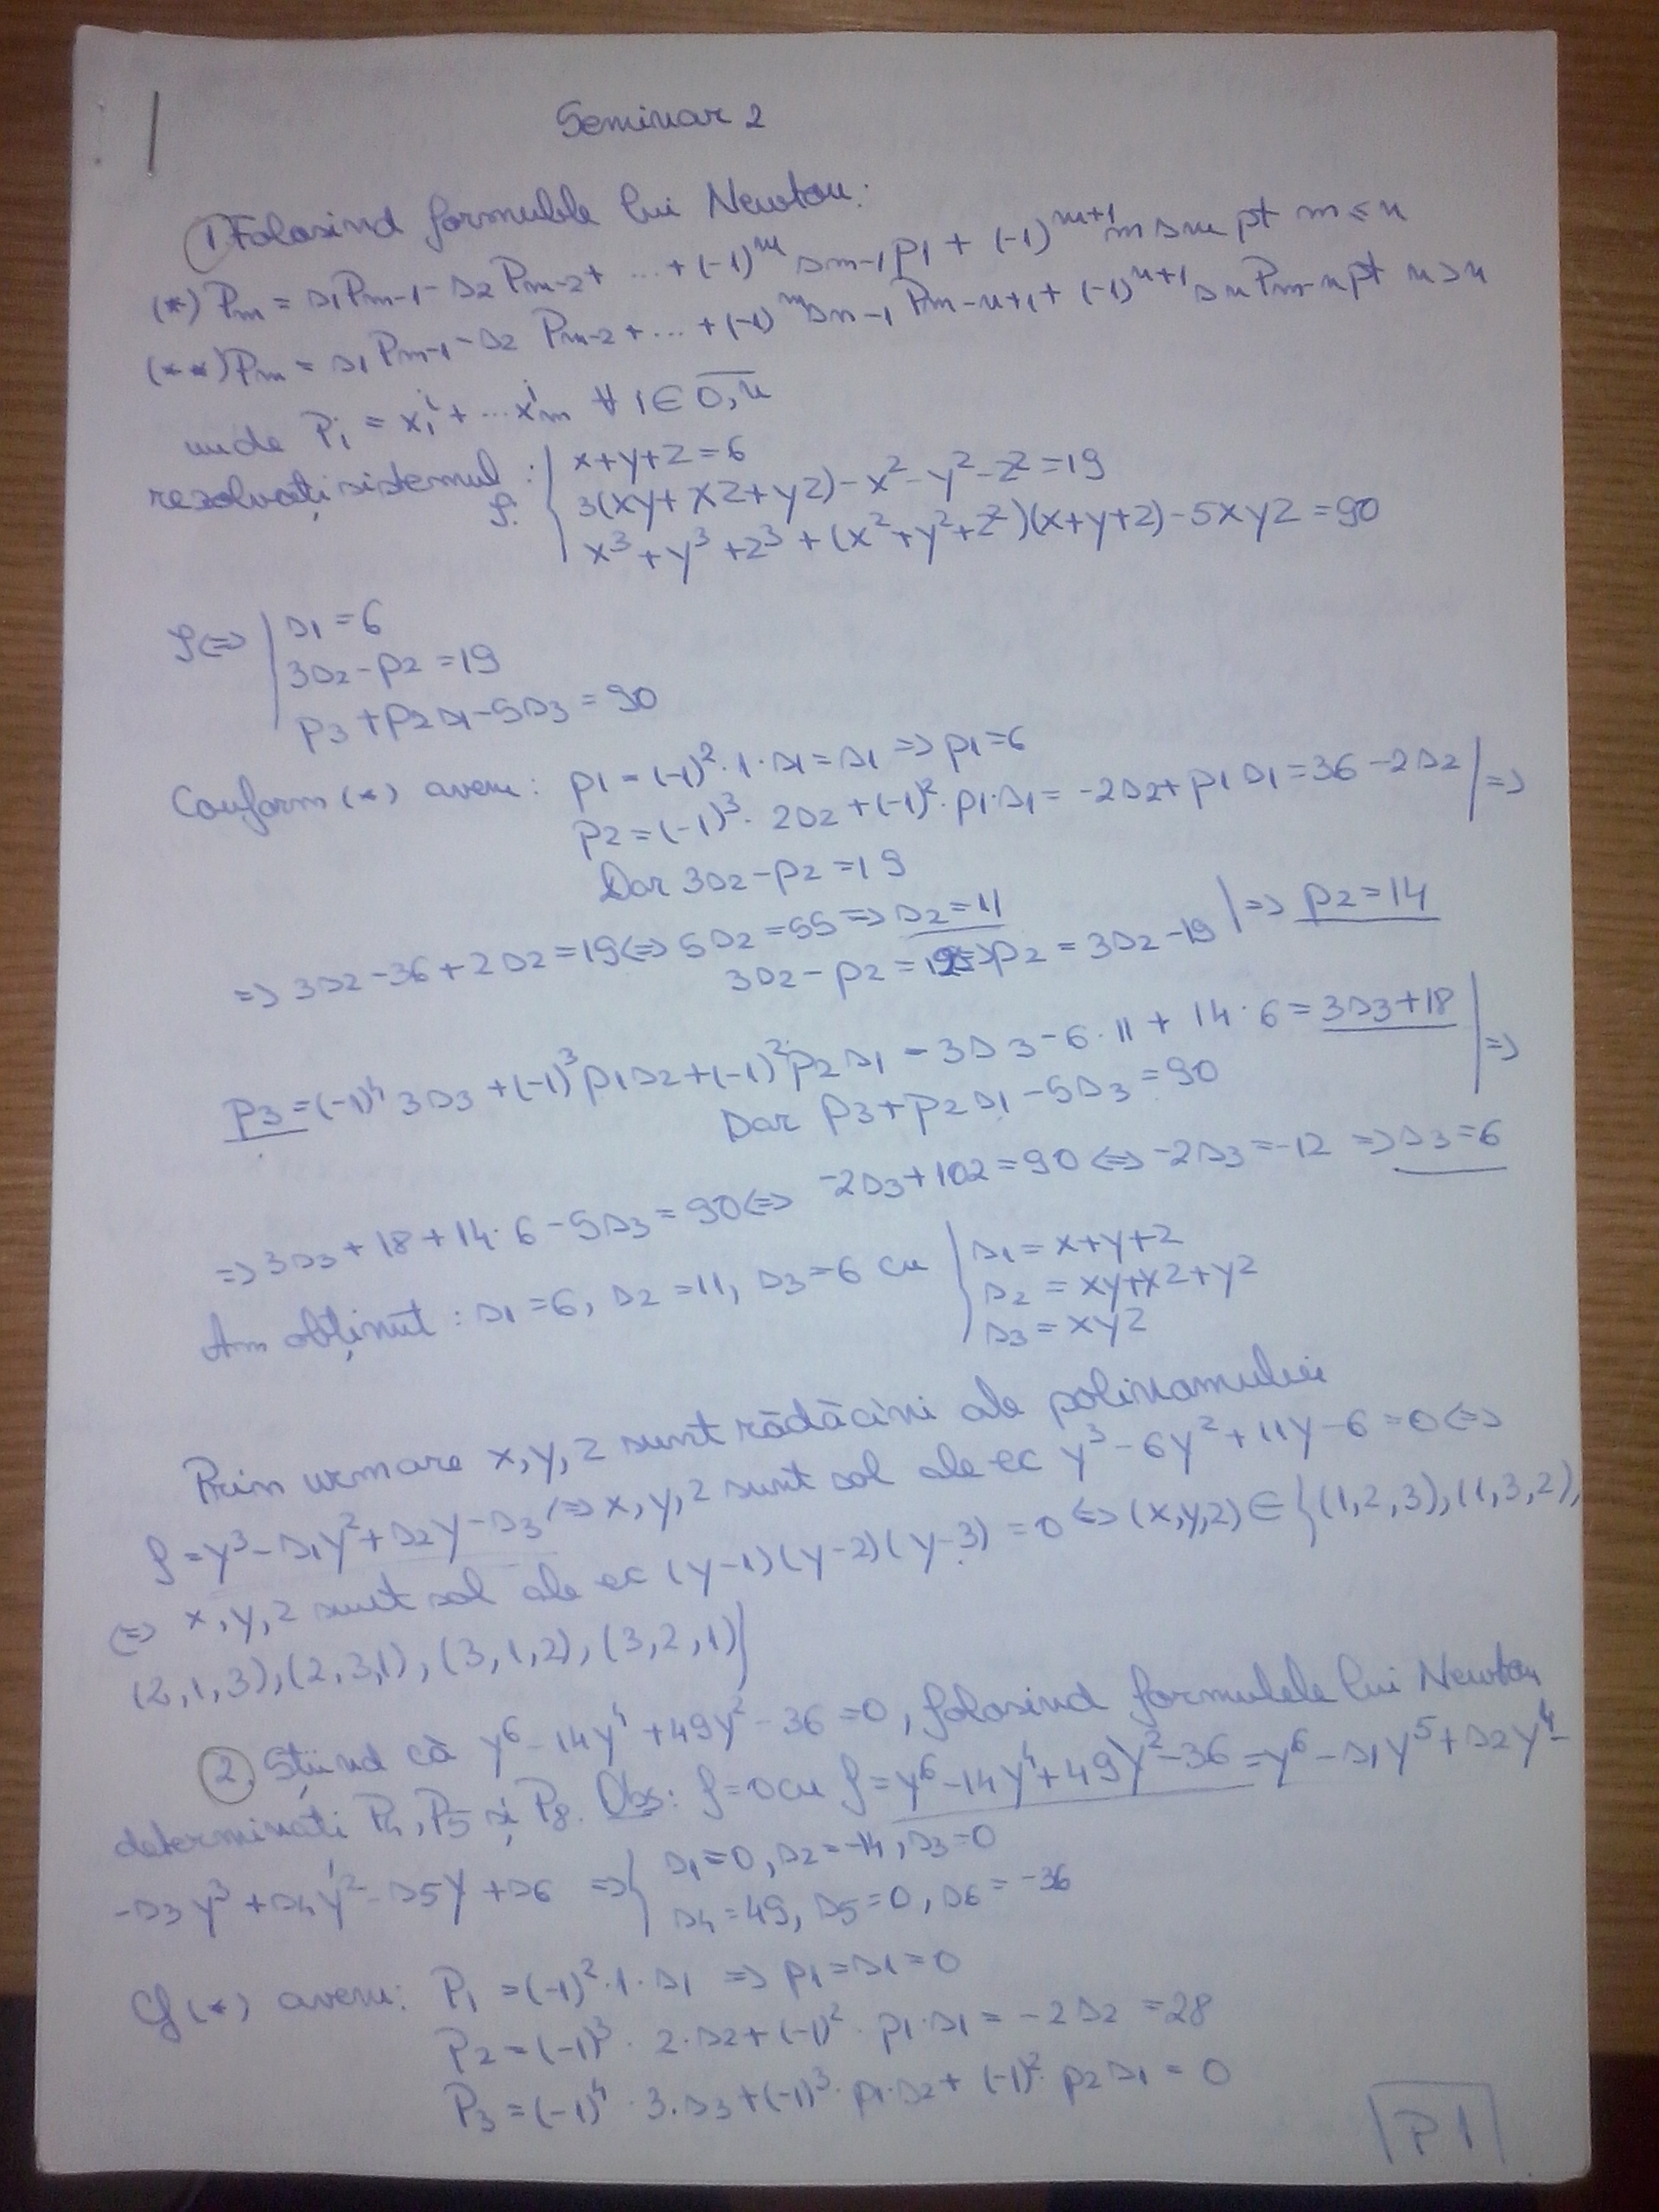 Seminar 2
① Folosind formulele lui Newton:
(*) Pm = s1Pm-1 - s2Pm-2 + ... + (-1)^m sm-1p1 + (-1)^m+1 m sm pt m ≤ n
(**) Pm = s1Pm-1 - s2 Pm-2 + ... + (-1)^n sn-1 Pm-n+1 + (-1)^n+1 sn Pm-n pt n > n
unde Pi = x1^i + ... x^i m ∀ i ∈ 0,n
rezolvați sistemul S: { x+y+z=6
3(xy+xz+yz) - x² - y² - z² = 19
x³+y³+z³+(x²+y²+z²)(x+y+z) - 5xyz = 90
S <=> { s1 = 6
3s2 - p2 = 19
p3 + p2s1 - 5s3 = 90
Conform (*) avem: p1 = (-1)²·1·s1 = s1 => p1 = 6
p2 = (-1)³·2s2 + (-1)²·p1·s1 = -2s2 + p1s1 = 36 - 2s2 | =>
Dar 3s2 - p2 = 19
=> 3s2 - 36 + 2s2 = 19 <=> 5s2 = 55 => s2 = 11
3s2 - p2 = 19 => p2 = 3s2 - 19 | => p2 = 14
p3 = (-1)⁴ 3s3 + (-1)³ p1s2 + (-1)² p2s1 = 3s3 - 6·11 + 14·6 = 3s3 + 18 | =>
Dar p3 + p2s1 - 5s3 = 90
=> 3s3 + 18 + 14·6 - 5s3 = 90 <=> -2s3 + 102 = 90 <=> -2s3 = -12 => s3 = 6
Am obținut: s1 = 6, s2 = 11, s3 = 6 cu { s1 = x+y+z
s2 = xy+xz+yz
s3 = xyz
Prin urmare x,y,z sunt rădăcini ale polinomului
f = y³ - s1y² + s2y - s3 <=> x,y,z sunt sol ale ec y³ - 6y² + 11y - 6 = 0 <=>
<=> x,y,z sunt sol ale ec (y-1)(y-2)(y-3) = 0 <=> (x,y,z) ∈ {(1,2,3),(1,3,2),
(2,1,3),(2,3,1),(3,1,2),(3,2,1)}
② Știind că y⁶ - 14y⁴ + 49y² - 36 = 0, folosind formulele lui Newton
determinați P4, P5 și P8. Obs: f = 0 cu f = y⁶ - 14y⁴ + 49y² - 36 = y⁶ - s1y⁵ + s2y⁴ -
- s3y³ + s4y² - s5y + s6 => { s1 = 0, s2 = -14, s3 = 0
s4 = 49, s5 = 0, s6 = -36
Cf (*) avem: P1 = (-1)²·1·s1 => p1 = s1 = 0
P2 = (-1)³·2·s2 + (-1)²·p1·s1 = -2s2 = 28
P3 = (-1)⁴·3·s3 + (-1)³·p1·s2 + (-1)²·p2s1 = 0
P1